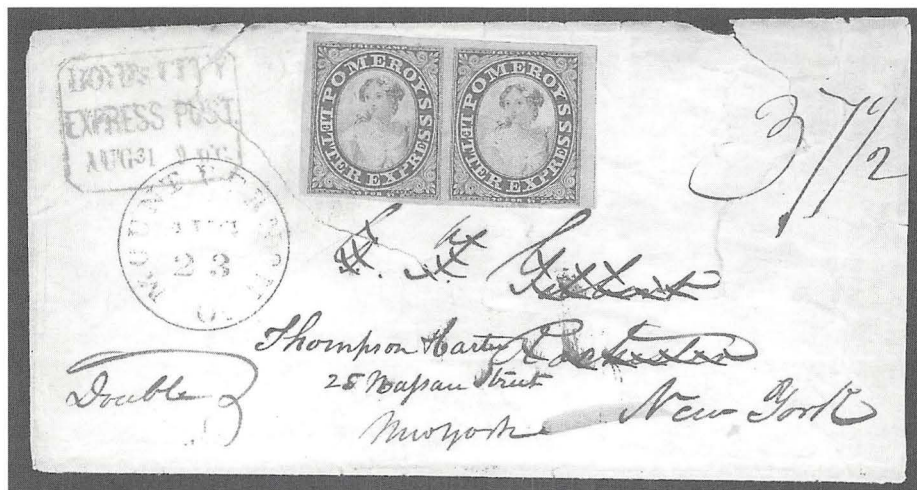 BOYD'S CITY
EXPRESS POST.
AUG 31
POMEROYS
LETTER EXPRESS
POMEROYS
LETTER EXPRESS
37 1/2
AUG
23
O.
Thompson Harter
28 Nassau Street
New York
New York
Double